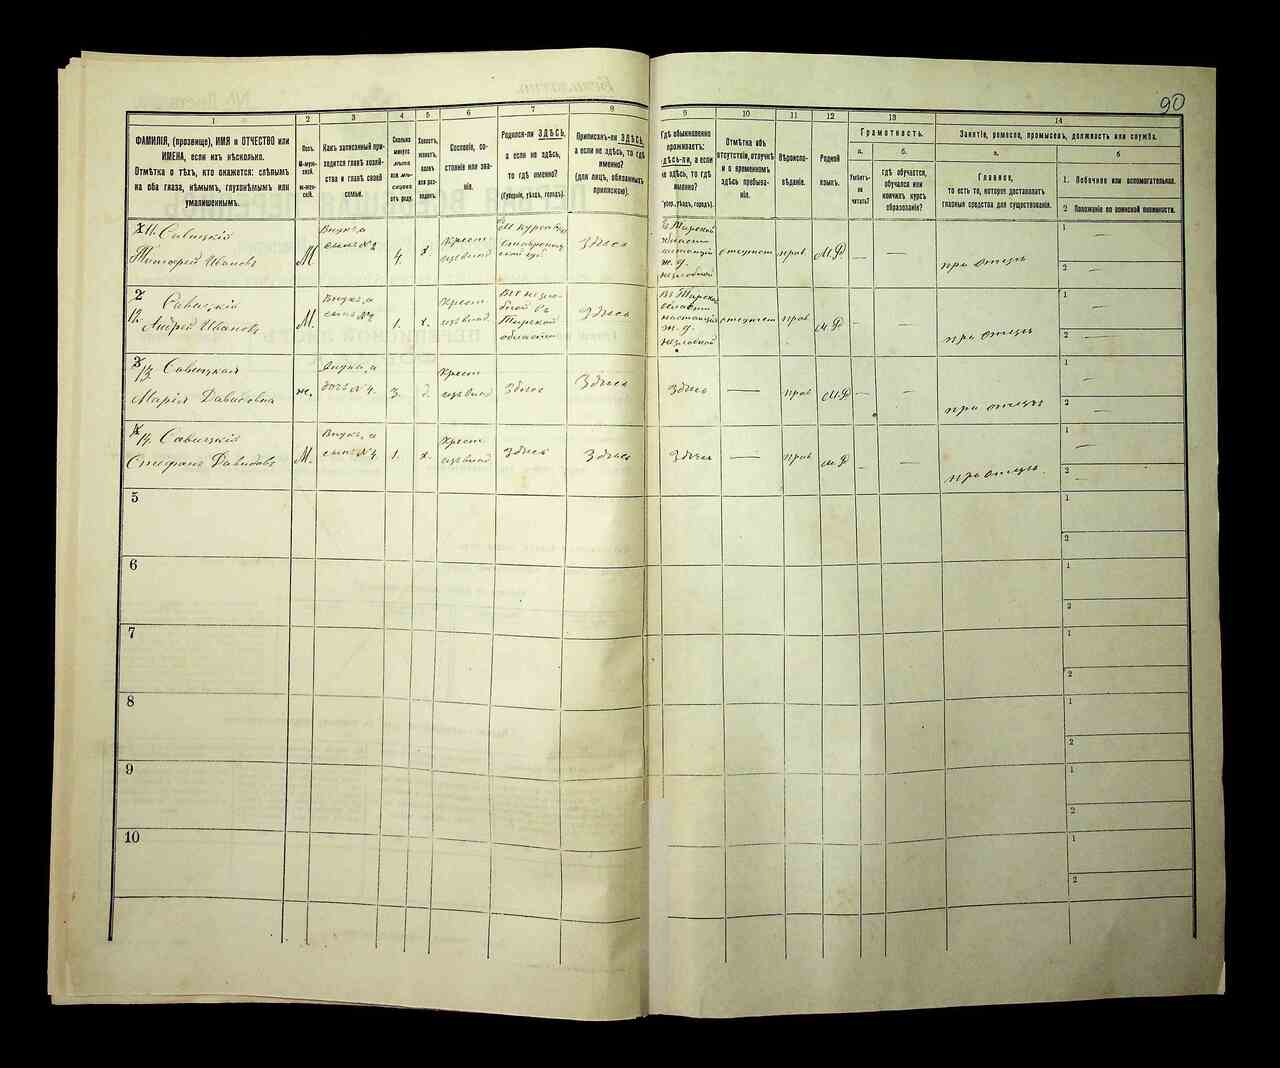 90
1
2
3
4
5
6
7
8
9
10
11
12
13
14
ФАМИЛІЯ, (прозвище), ИМЯ и ОТЧЕСТВО или
ИМЕНА, если ихъ нѣсколько.
Отмѣтка о тѣхъ, кто окажется: слѣпымъ
на оба глаза, нѣмымъ, глухонѣмымъ или
умалишеннымъ.
Полъ.
М-муж-
ской.
ж-жен-
скій.
Какъ записанный при-
ходится главѣ хозяй-
ства и главѣ своей
семьи.
Сколько
минуло
лѣтъ
или мѣ-
сяцевъ
отъ роду.
Холостъ,
женатъ,
вдовъ
или раз-
веденъ.
Сословіе, со-
стояніе или зва-
ніе.
Родился-ли ЗДѢСЬ,
а если не здѣсь,
то гдѣ именно?
(Губернія, уѣздъ, городъ).
Приписанъ-ли ЗДѢСЬ,
а если не здѣсь, то гдѣ
именно?
(для лицъ, обязанныхъ
припискою).
Гдѣ обыкновенно
проживаетъ:
здѣсь-ли, а если
не здѣсь, то гдѣ
именно?
губер., уѣздъ, городъ).
Отмѣтка объ
отсутствіи, отлучкѣ
и о временномъ
здѣсь пребыва-
ніи.
Вѣроиспо-
вѣданіе.
Родной
языкъ.
Грамотность.
а.
Умѣетъ-
ли
читать?
б.
гдѣ обучается,
обучался или
кончилъ курсъ
образованія?
Занятіе, ремесло, промыселъ, должность или служба.
а.
Главное,
то есть то, которое доставляетъ
главныя средства для существованія.
б
1. Побочное или вспомогательное.
2 Положеніе по воинской повинности.
11. Савицкій
Тимофей Ивановъ
М
Внукъ, а
сынъ № 2
4.
х.
Крест.
изъ влад
Ставропол
ской губ.
Здѣсь
Въ Терской
области
ж. д.
незлобной
отсутст
прав.
М.Р
—
—
при отцѣ
1
—
2
—
2
12.
Савицкій
Андрей Ивановъ
М.
Внукъ, а
сынъ № 2
1.
х.
Крест.
изъ влад.
Вел незло-
бной въ
Терской
области
Здѣсь
Въ Терской
области
ж. д.
незлобной
отсутст
прав
М Р
—
при отцѣ
1
—
2
—
3
13
Савицкая
Марія Давидовна
ж.
Внука, а
дочь № 4.
3.
д.
Крест
изъ влад
Здѣсь
Здѣсь
Здѣсь
—
прав
М.Р
—
—
при отцѣ
1
—
2
—
14. Савицкій
Стефанъ Давидовъ
М.
Внукъ, а
сынъ № 4
1.
х.
Крест.
изъ влад
Здѣсь
Здѣсь
Здѣсь
—
прав
М Р
—
—
при отцѣ.
1
—
2
—
5
1
2
6
1
2
7
1
2
8
1
2
9
1
2
10
1
2